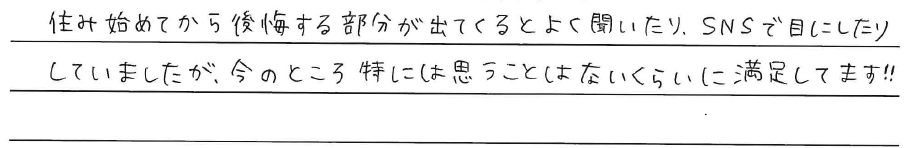 住み始めてから後悔する部分が出てくるとよく聞いたり、SNSで目にしたり
していましたが、今のところ特には思うことはないくらいに満足してます!!